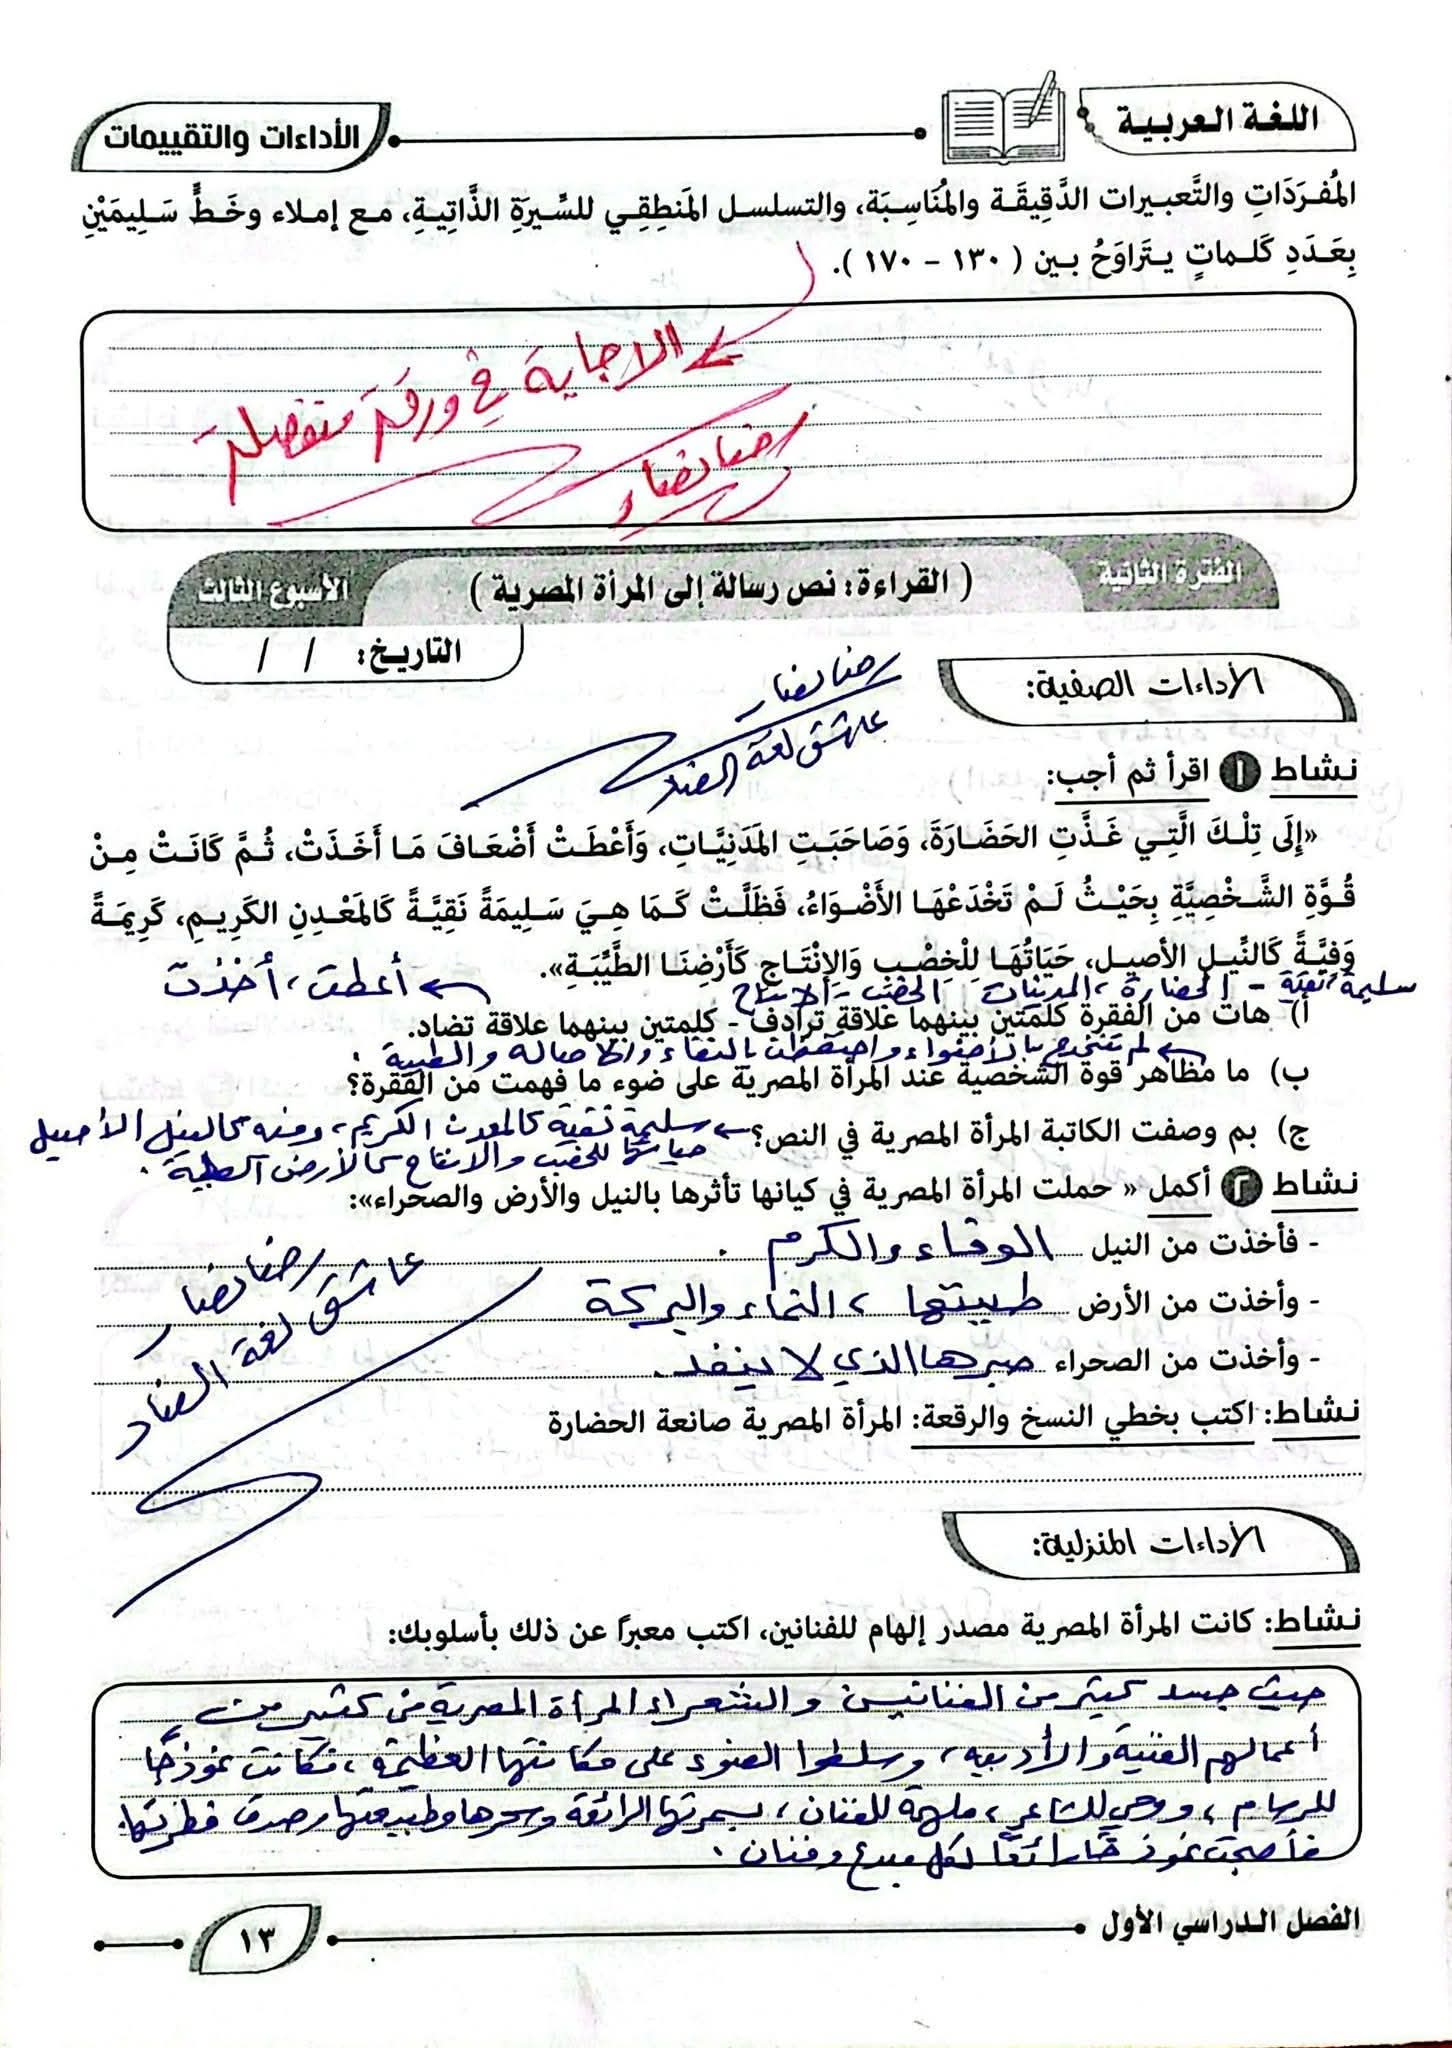 اللغة العربية
الأداءات والتقييمات
المُفرَدَاتِ والتَّعبيرات الدَّقِيقَة والمُنَاسِبَة، والتسلسل المَنطِقِي للسِّيرَةِ الذَّاتِيةِ، مع إملاء وخَطٍّ سَلِيمَيْنِ
بِعَدَدِ كَلماتٍ يتَراوَحُ بين ( ١٣٠ - ١٧٠ ).
الاجابة في ورقة منفصلة
رضا نصار
الفترة الثانية
( القراءة: نص رسالة إلى المرأة المصرية )
الأسبوع الثالث
التاريخ: / /
الأداءات الصفية:
رضا نصار
عاشق لغة الضاد
نشاط ١ اقرأ ثم أجب:
«إِلَى تِلْكَ الَّتِي غَذَّتِ الحَضَارَةَ، وَصَاحَبَتِ المَدَنِيَّاتِ، وَأَعْطَتْ أَضْعَافَ مَا أَخَذَتْ، ثُمَّ كَانَتْ مِنْ
قُوَّةِ الشَّخْصِيَّةِ بِحَيْثُ لَمْ تَخْدَعْهَا الأَضْوَاءُ، فَظَلَّتْ كَمَا هِيَ سَلِيمَةً نَقِيَّةً كَالمَعْدِنِ الكَرِيمِ، كَرِيمَةً
وَفِيَّةً كَالنِّيلِ الأصِيلِ، حَيَاتُهَا لِلْخِصْبِ وَالإِنْتَاجِ كَأَرْضِنَا الطَّيِّبَةِ».
سليمة، نقية - الحضارة، المدنيات الخصب - الإنتاج أعطت، أخذت
أ) هات من الفقرة كلمتين بينهما علاقة ترادف - كلمتين بينهما علاقة تضاد.
لم تنخدع بالأضواء واحتفظت بالنقاء والاصالة والطيبة.
ب) ما مظاهر قوة الشخصية عند المرأة المصرية على ضوء ما فهمت من الفقرة؟
ج) بم وصفت الكاتبة المرأة المصرية في النص؟ سليمة نقية كالمعدن الكريم، وفية كالنيل الأصيل
حياتها للخصب والانتاج كالأرض الطيبة.
نشاط ٢ أكمل « حملت المرأة المصرية في كيانها تأثرها بالنيل والأرض والصحراء»:
- فأخذت من النيل الوفاء والكرم.
- وأخذت من الأرض طيبتها، النماء والبركة
- وأخذت من الصحراء صبرها الذي لا ينفد.
رضا نصار
عاشق لغة الضاد
نشاط: اكتب بخطي النسخ والرقعة: المرأة المصرية صانعة الحضارة
الأداءات المنزلية:
نشاط: كانت المرأة المصرية مصدر إلهام للفنانين، اكتب معبرًا عن ذلك بأسلوبك:
حيث جسد كثير من الفنانين والشعراء المرأة المصرية في كثير من
أعمالهم الفنية والأدبية، وسلطوا الضوء على مكانتها العظيمة، فكانت نموذجًا
للرسام، ووحي للشاعر، ملهمة للفنان، بسمرتها الرائعة وسحرها وطبيعتها وصدق فطرتها.
فأصبحت نموذجًا رائعًا لكل مبدع وفنان.
الفصل الدراسي الأول
١٣